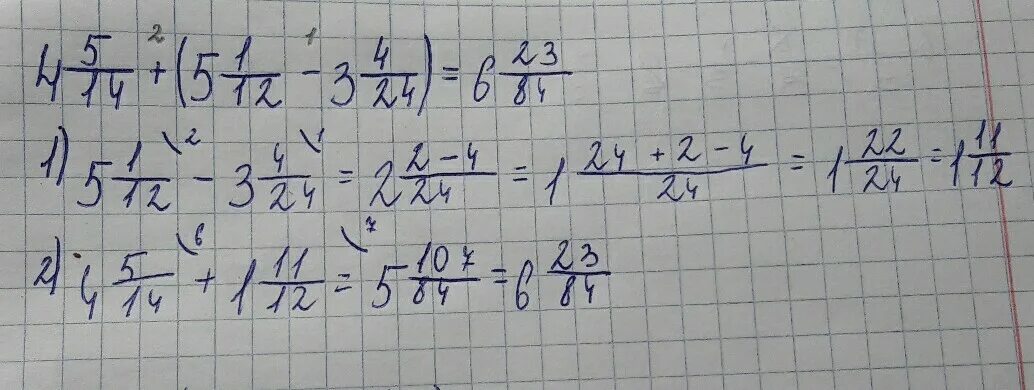 4 5/14 +² (5 1/12 -¹ 3 4/24) = 6 23/84
1) 5 1/12 \2 - 3 4/24 \1 = 2 2-4/24 = 1 24+2-4/24 = 1 22/24 = 1 11/12
2) 4 5/14 \6 + 1 11/12 \7 = 5 107/84 = 6 23/84